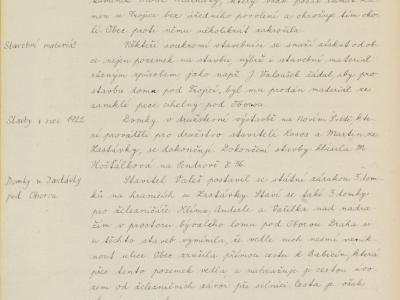 mou u Trojice bez úředního povolení a ohrožuje tím okolí. Obec proti němu několikrát zakročila.
Stavební materiál
Někteří soukromí stavebníci se snaží získat od obce
nejen pozemek na stavbu, nýbrž i stavební materiál
různým způsobem jako např. J. Valoušek žádal, aby pro
stavbu domu pod Trojicí, byl mu prodán materiál ze
zaniklé pece cihelny pod Oborou.
Stavby v roce 1922
Domky v družstevní výstavbě na Novém Světě, kte
ré prováděli pro družstvo stavitelé Kosos a Martin ze
Zastávky, se dokončují. Dokončení stavby hlásila M.
Košťálková na Pendrově č. 36.
Domky u Zastávky
pod Oborou
Stavitel Valeš postavil se státní zárukou 5 dom
ků na hranicích u Zastávky. Staví se také 3 domky
pro železničáře Klíma, Anderle a Vašulka nad nádra
žím v prostoru bývalého lomu pod Oborou. Dráha se
u těchto staveb vymínila, že vedle nich nesmí vznik
nout ulice. Obec zrušila přímou cestu k Babicím, která
přes tento pozemek vedla a nahrazuje ji cestou úvo
zem od železničních závor při silnici. Cesta je však